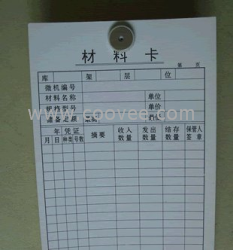 材料卡
第 页
库 架 层 位
微机编号
材料名称 单位
单价
储备定额
年 凭证 摘要 收入数量 发出数量 结存数量 保管人签章
月 日 种类 号数
www.coovee.com